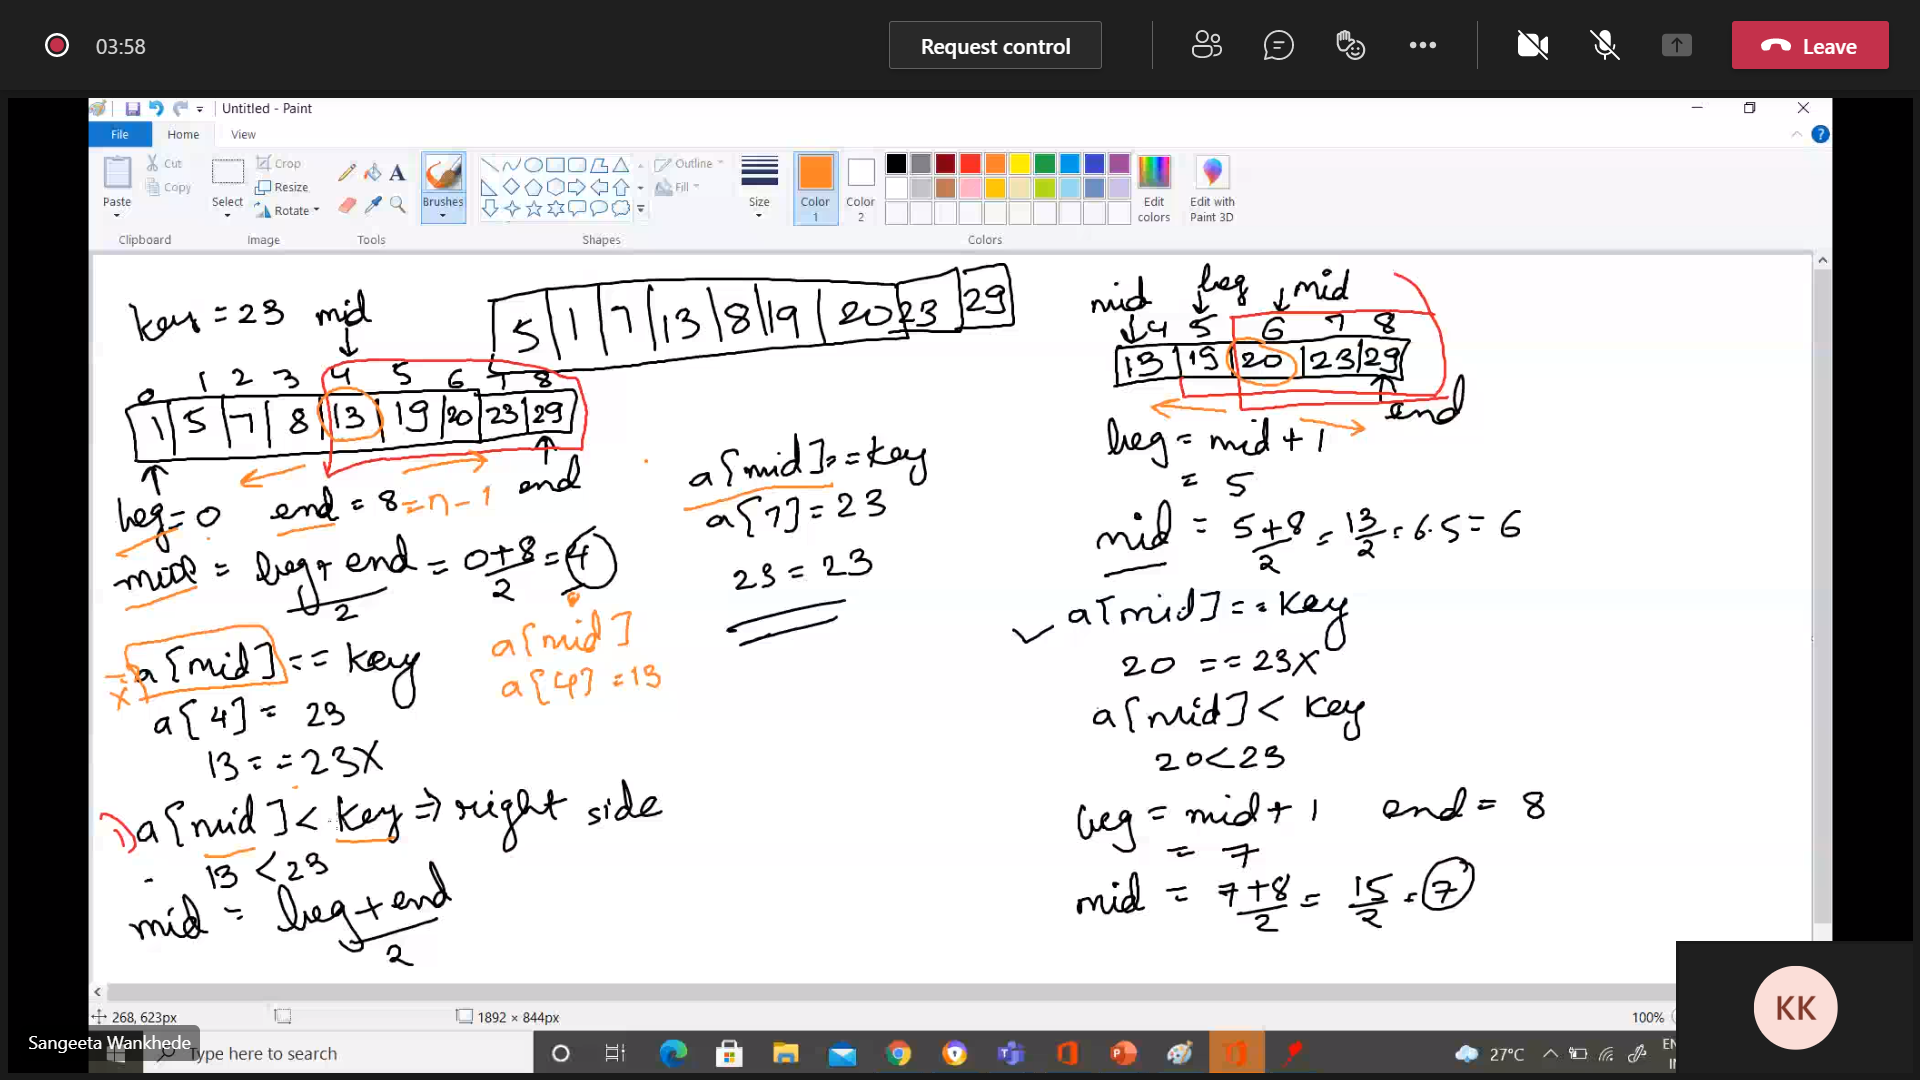 03:58
Request control
Leave
Untitled - Paint
File Home View
Paste
Cut
Copy
Clipboard
Select
Crop
Resize
Rotate
Image
Tools
Brushes
Shapes
Outline
Fill
Size
Color 1
Color 2
Colors
Edit colors
Edit with Paint 3D
key = 23 mid
5 1 7 13 8 19 20 23 29
0 1 2 3 4 5 6 7 8
1 5 7 8 13 19 20 23 29
beg = 0 end = 8 = n-1 end
mid = beg + end / 2 = 0+8 / 2 = 4
a[mid] == key
a[4] = 23
13 == 23X
a[mid]
a[4] = 13
1) a[mid] < key => right side
13 < 23
mid = beg + end / 2
a[mid] == key
a[7] = 23
23 = 23
mid beg mid
4 5 6 7 8
13 19 20 23 29
end
beg = mid + 1
= 5
mid = 5+8 / 2 = 13 / 2 = 6.5 = 6
a[mid] == key
20 == 23X
a[mid] < key
20 < 23
beg = mid + 1 end = 8
= 7
mid = 7+8 / 2 = 15 / 2 = 7
268, 623px
1892 × 844px
100%
KK
Sangeeta Wankhede
Type here to search
27°C